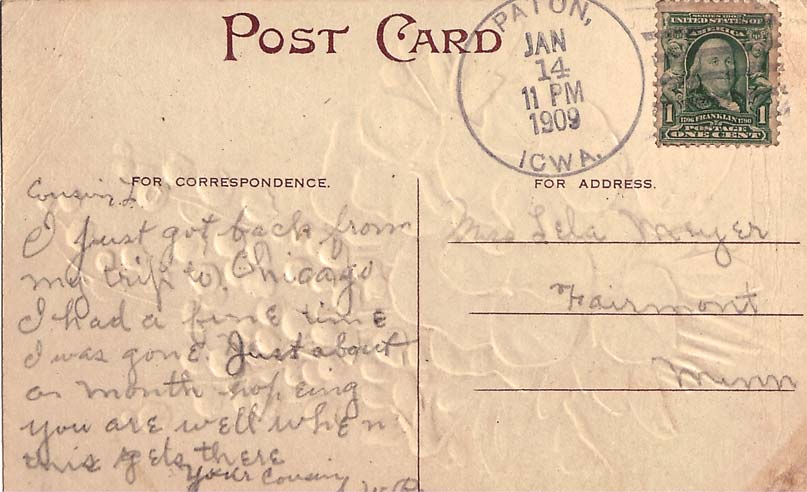 POST CARD
PATON,
JAN
14
11 PM
1909
IOWA.
SERIES 1902
UNITED STATES OF
AMERICA
1 1706 FRANKLIN 1790 1
POSTAGE
ONE CENT
FOR CORRESPONDENCE.
FOR ADDRESS.
Cousin L
I just got back from
my trip to Chicago
I had a fine time
I was gone. Just about
a month hopeing
you are well when
this gets there
your cousin
Miss Lela Meyer
Fairmont
Minn